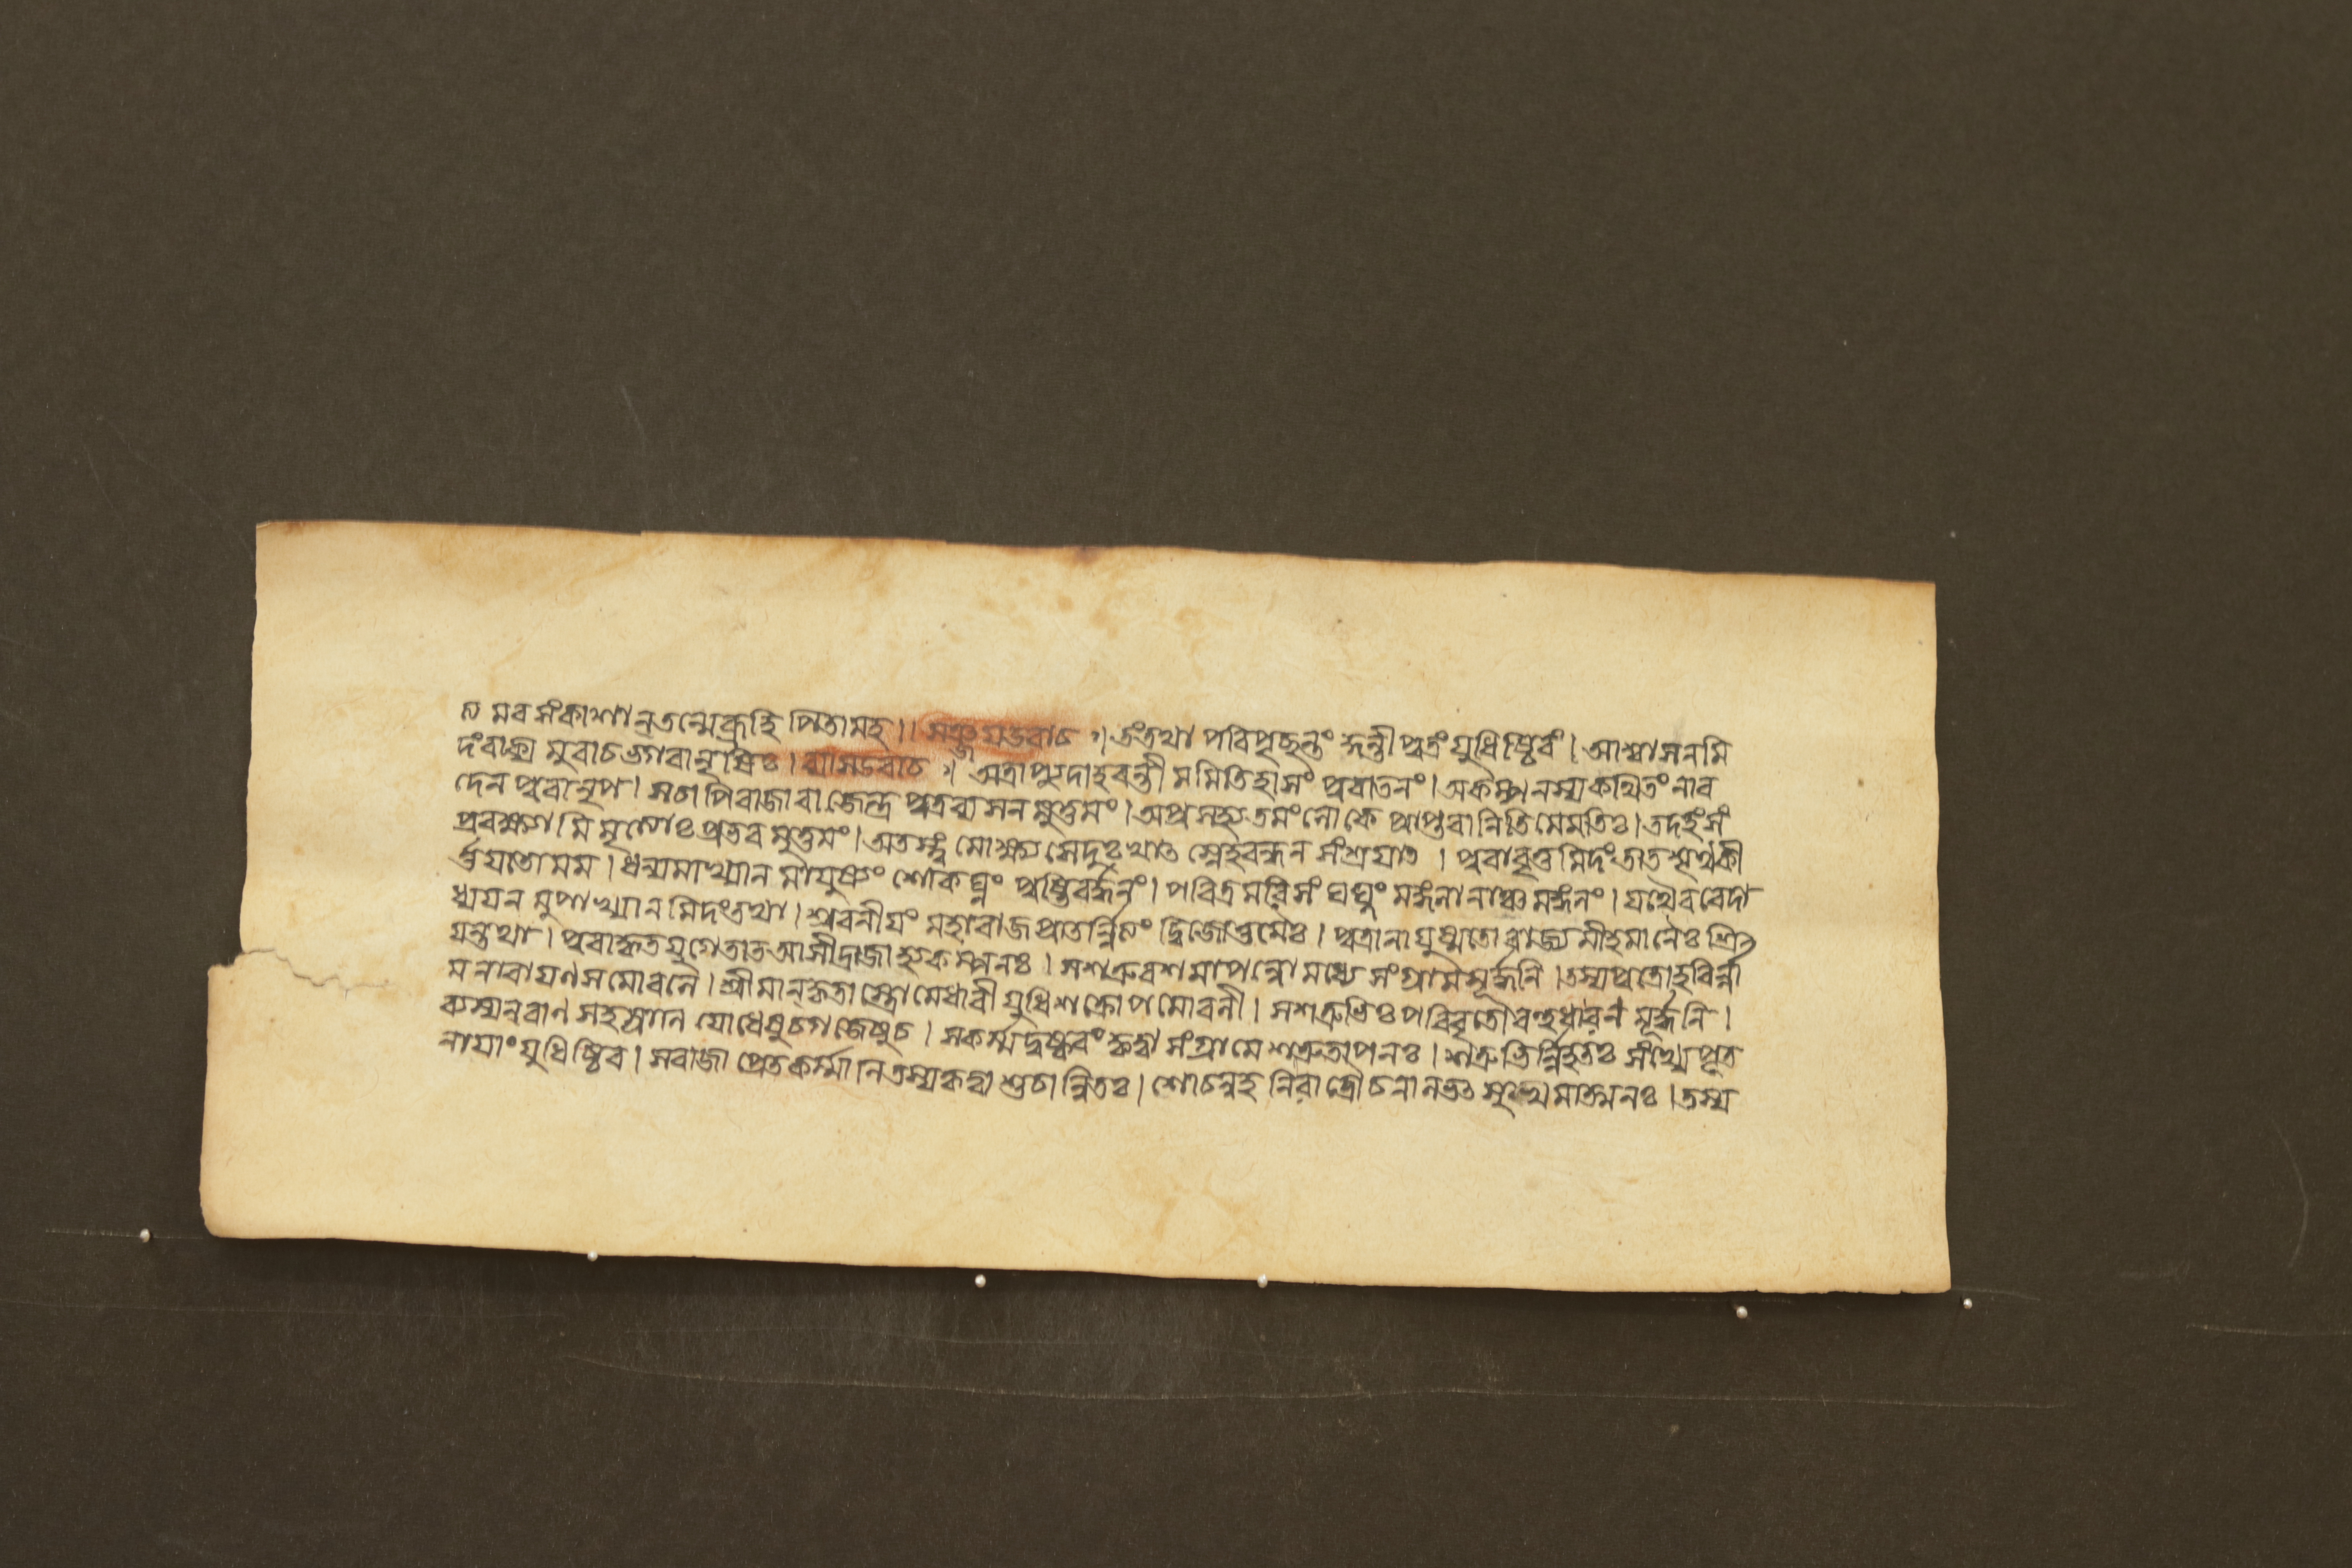 ন মবসংকাশানতন্মেব্রূহি পিতামহ।। সঞ্জয়উবাচ ঃ। তংতথা পবিপৃচ্ছন্তং কুন্তীপুত্রংযুধিষ্ঠিবং। আশ্বাসনমি
দংবাক্য মুবাচভগবানৃষিঃ। ব্যাসউবাচ ঃ। অত্রাপ্যুদাহবন্তী মমিতিহাসং পুবাতনং। অকম্পনস্যকথিতং নাব
দেন পুবানৃপ। সচাপিবাজাবাজেন্দ্র পুত্রব্যসনমুত্তমং। অপ্রসহ্যতমংলোকে প্রাপ্তবানিতিমেমতিঃ। তদহংসং
প্রবক্ষ্যামি মৃত্যোঃপ্রভবমুত্তমং। অতস্ত্বং মোক্ষ্যসেদুঃখাৎ স্নেহবন্ধনসংশ্রয়াৎ। পুবাবৃত্তমিদংতাত শৃণুকী
র্ত্তয়তোমম। ধন্যমাখ্যানমায়ুষ্যং শোকঘ্নং পুষ্টিবর্দ্ধনং। পবিত্রমরিসংঘঘ্নং মঙ্গলানাঞ্চমঙ্গলং। যথৈববেদা
ধ্যয়নমুপাখ্যানমিদংতথা। শ্রবনীয়ং মহাবাজ প্রাতর্ন্নিত্যং দ্বিজোত্তমৈঃ। পুত্রানায়ুষ্মতো রাজ্যমীহমানৈঃশ্রি
য়ন্তথা। পুবাকৃতযুগেতাত আসীদ্রাজাহ্যকম্পনঃ। সশত্রুবশমাপন্নোমধ্যে সংগ্রামমূর্দ্ধনি। তস্যপুত্রোহবির্ন্না
মনাবায়ণসমোবলে। শ্রীমানকৃতাস্ত্রোমেধাবী যুধিশক্রোপমোবলী। সশত্রুভিঃপবিবৃতোবহুধারণমূর্দ্ধনি।
ব্যস্যনবাণসহস্রাণি যোধেষুচগজেষুচ। সকর্ম্মদুষ্কবং কৃত্বা সংগ্রামে শত্রুতাপনঃ। শত্রুভির্ন্নিহতঃ সংখ্যেপৃত
নায়াংযুধিষ্ঠিব। সবাজা প্রেতকর্ম্মানিতস্যকৃত্বা শুচান্বিতঃ। শোচন্নহনিরাত্রৌচনালভৎসুখমাত্মনঃ। তস্য